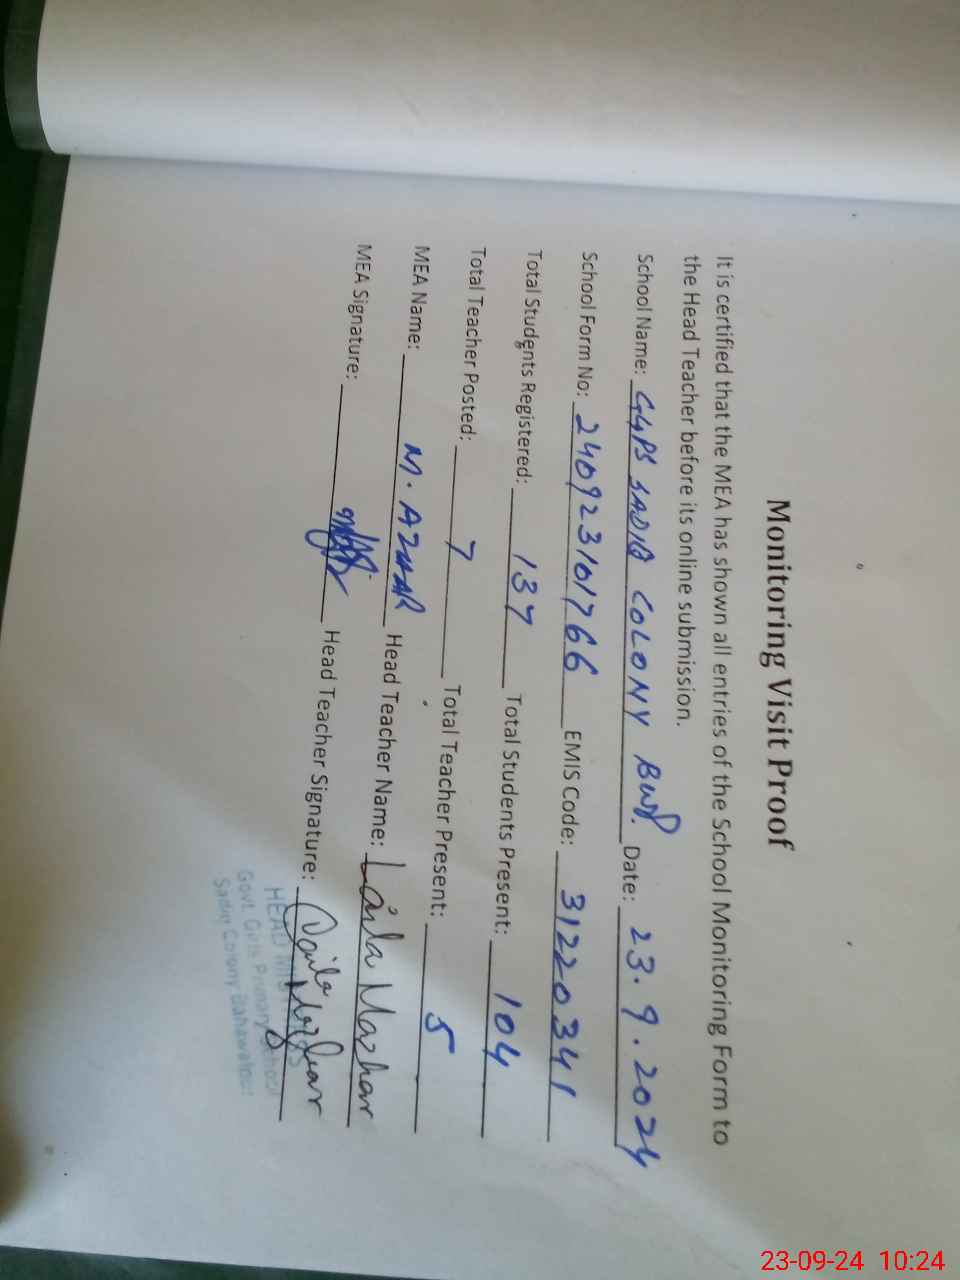 Monitoring Visit Proof
It is certified that the MEA has shown all entries of the School Monitoring Form to
the Head Teacher before its online submission.
School Name: GGPS SADIQ COLONY BWP. Date: 23.9.2024
School Form No: 240923101766 EMIS Code: 31220341
Total Students Registered: 137 Total Students Present: 104
Total Teacher Posted: 7 Total Teacher Present: 5
MEA Name: M. AZHAR Head Teacher Name: Laila Mazhar
MEA Signature: Head Teacher Signature: Laila Mazhar
HEAD
Govt. Girls Primary School
Sadiq Colony Bahawalpur
23-09-24 10:24